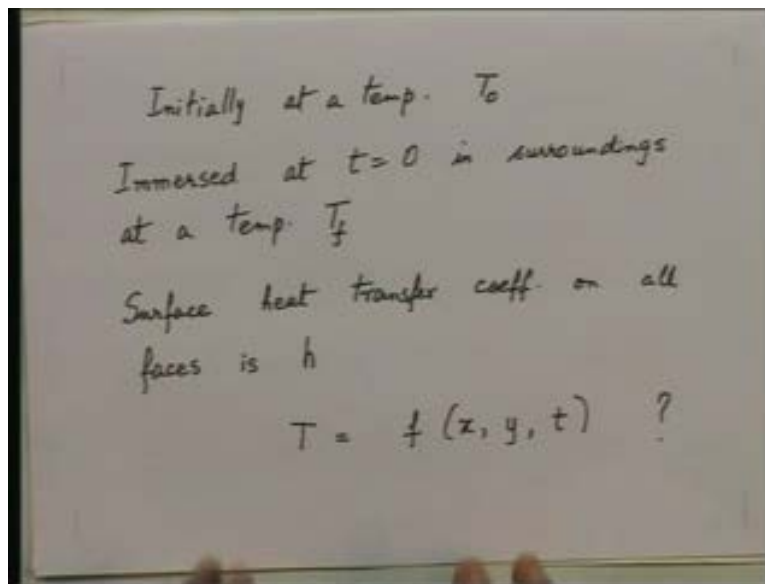 Initially at a temp. To
Immersed at t=0 in surroundings
at a temp. Tf
Surface heat transfer coeff. on all
faces is h
T = f (x, y, t) ?